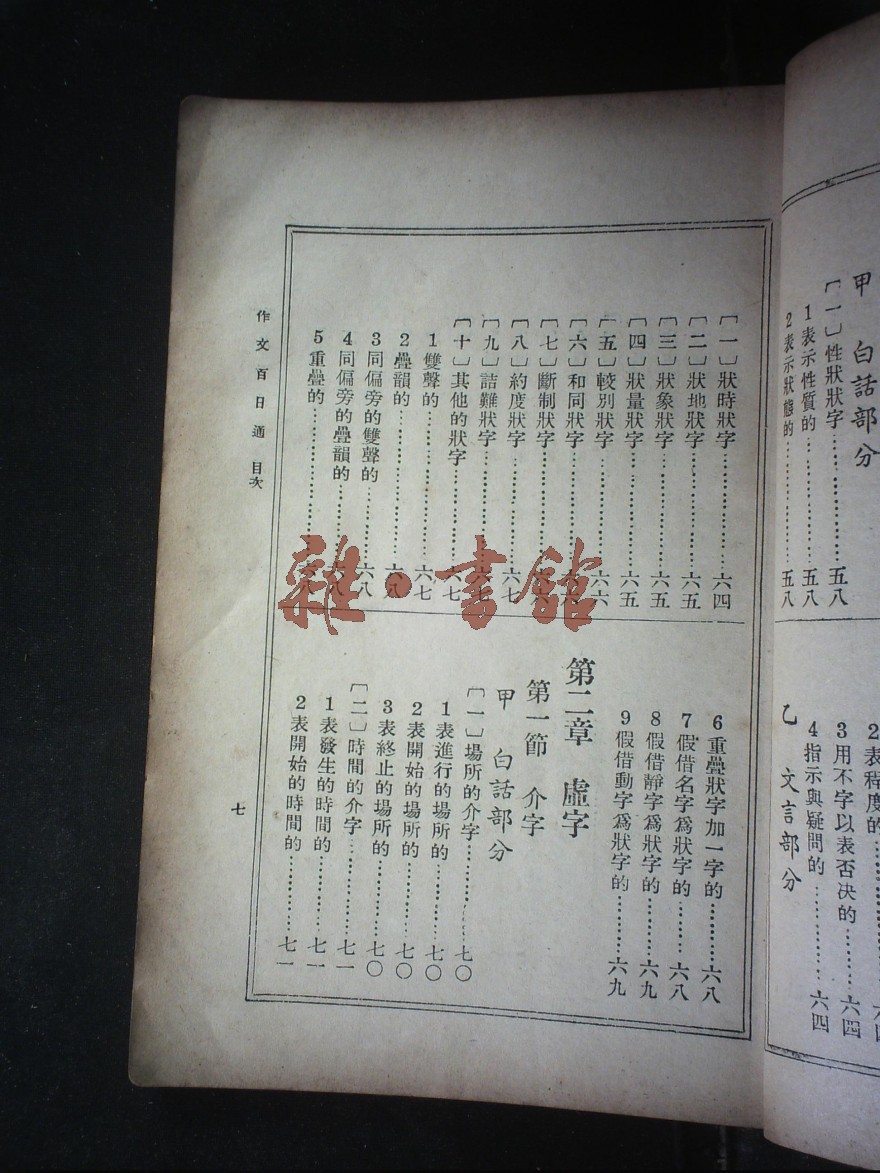 甲 白話部分
〔一〕性狀狀字…………五八
1 表示性質的…………五八
2 表示狀態的…………五八
2 表程度的…………六四
3 用不字以表否決的…………六四
4 指示與疑問的…………六四
乙 文言部分
〔一〕狀時狀字…………六四
〔二〕狀地狀字…………六五
〔三〕狀象狀字…………六五
〔四〕狀量狀字…………六五
〔五〕較別狀字…………六六
〔六〕和同狀字…………六六
〔七〕斷制狀字…………六六
〔八〕約度狀字…………六七
〔九〕詰難狀字…………六七
〔十〕其他的狀字…………六七
1 雙聲的…………六七
2 疊韻的…………六八
3 同偏旁的雙聲的…………六八
4 同偏旁的疊韻的…………六八
5 重疊的…………六八
6 重疊狀字加一字的…………六八
7 假借名字爲狀字的…………六八
8 假借靜字爲狀字的…………六九
9 假借動字爲狀字的…………六九
第二章 虛字
第一節 介字
甲 白話部分
〔一〕場所的介字…………七〇
1 表進行的場所的…………七〇
2 表開始的場所的…………七〇
3 表終止的場所的…………七〇
〔二〕時間的介字…………七一
1 表發生的時間的…………七一
2 表開始的時間的…………七一
作文百日通 目次
七
雜·書館